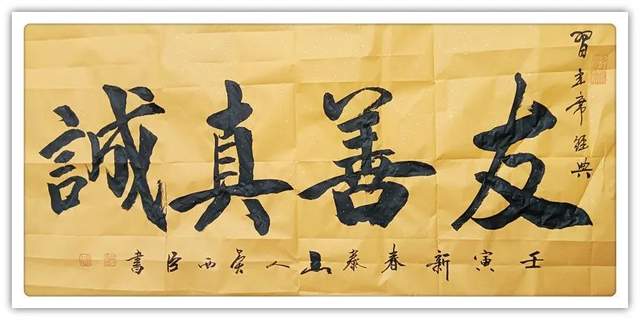 習主席經典
友善真誠
壬寅新春泰山人吳西臣書